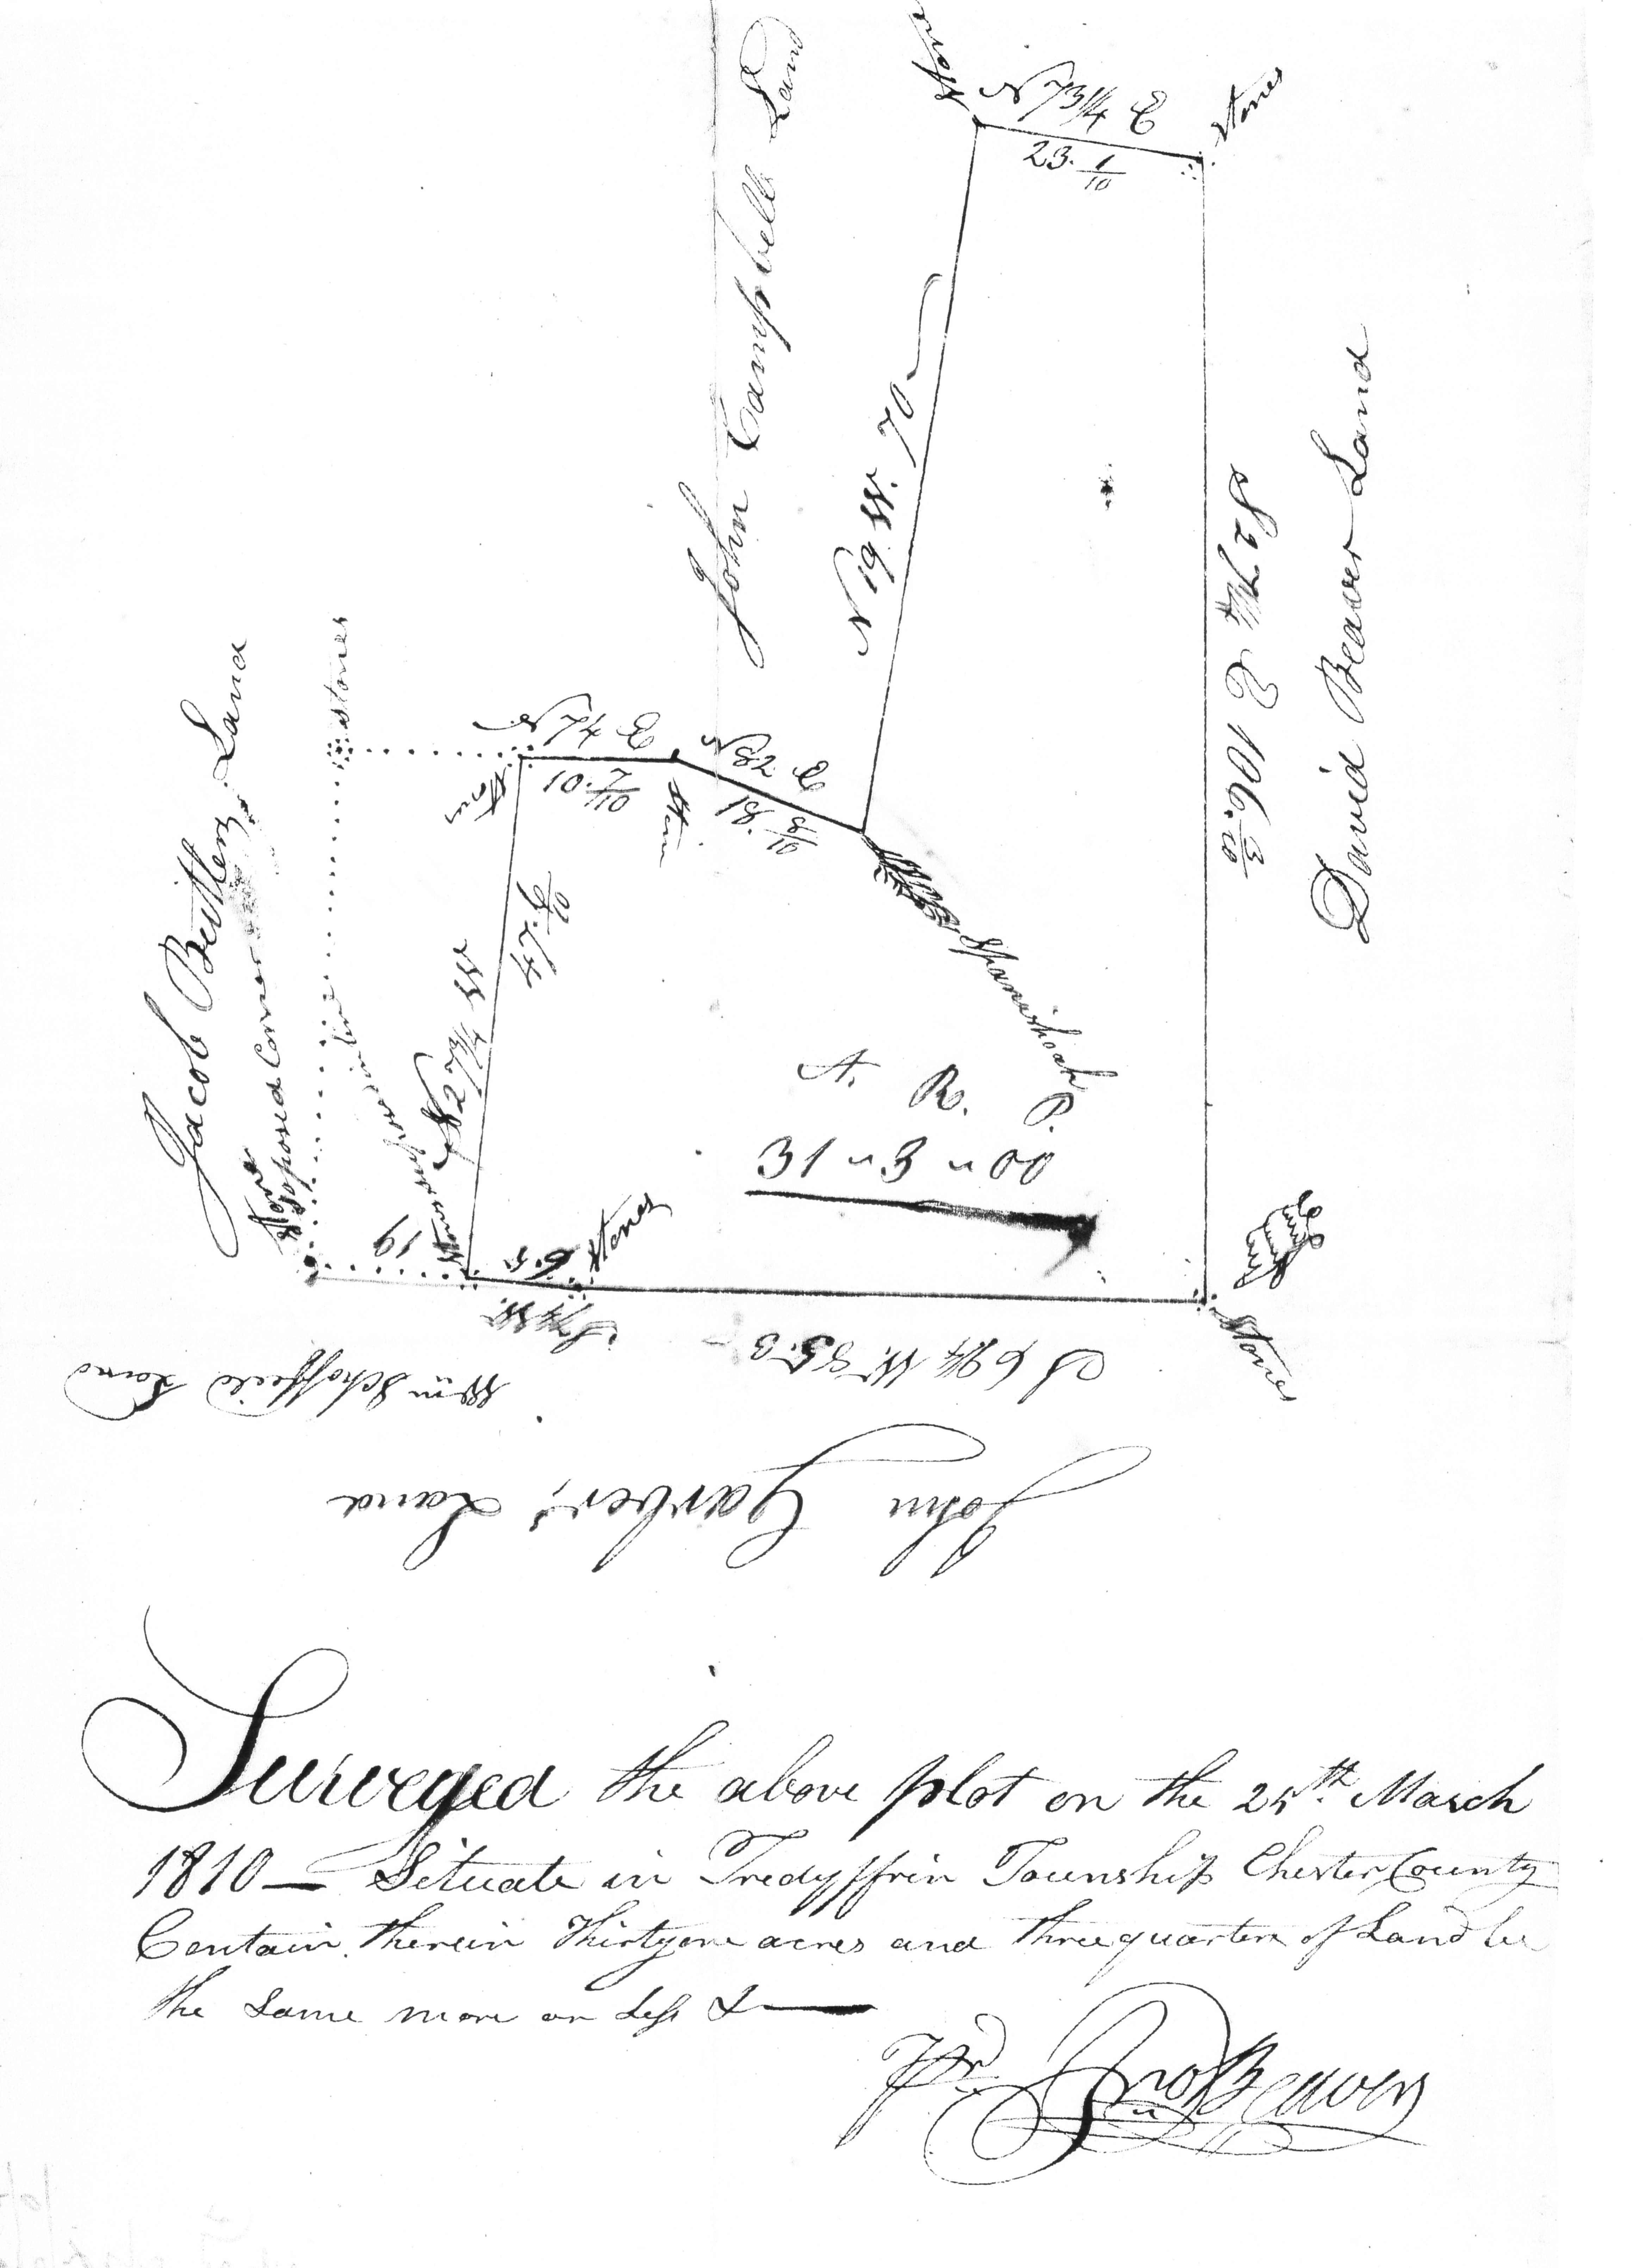 Stone
N 73 1/4 E
Stones
23. 1/10
John Campbell Land
N 19 W. 70
S 27 1/4 E 106. 3/10
David Beaver Land
Jacob Beitlers Land
stones
N 74 E
10. 7/10
N 82 E
18. 8/10
Spanishoak
N 27 3/4 W
47. 9/10
Soposed Corner
Stone
19
6.5
Stones
A. R. P.
31 " 3 " 00
Stones
S 69 1/4 W. 85.3
Wm Schoffeild Land
John Garber's Land
Surveyed the above plot on the 25th. March
1810 — Situate in Tredyffrin Township Chester County
Contain. therein Thirtyone acres and threequarters of Land be
the Same more or Less &
Pr. Jno Beaver